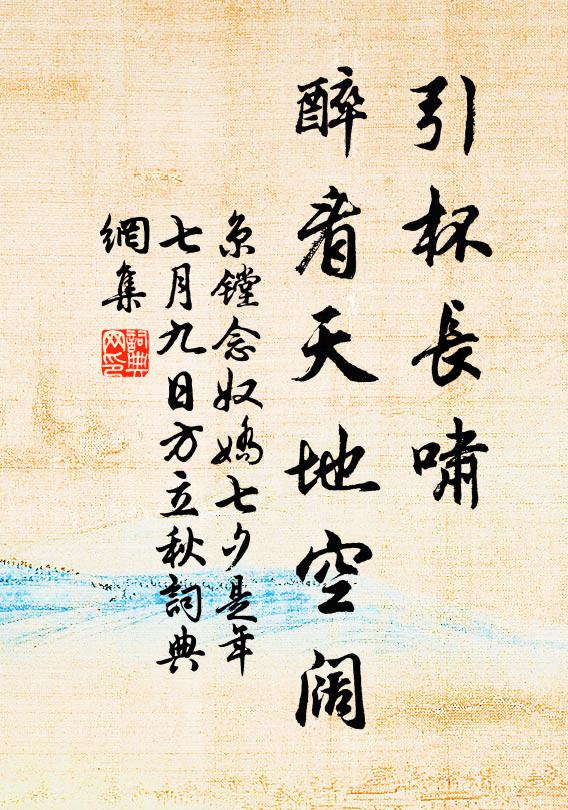 引杯長嘯
醉看天地空阔
京鏜念奴嬌七夕是年
七月九日方立秋詞典
網集
詞典
网印